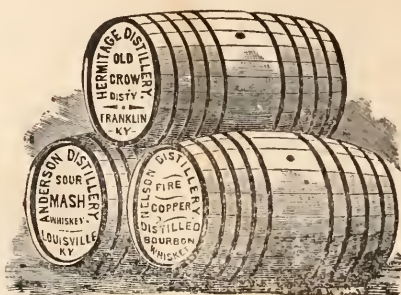 HERMITAGE DISTILLERY.
OLD
CROW
DISTY
FRANKLIN
-KY-
ANDERSON DISTILLERY
SOUR
MASH
WHISKEY.
LOUISVILLE
KY
NELSON DISTILLERY
FIRE
COPPER
DISTILLED
BOURBON
WHISKEY